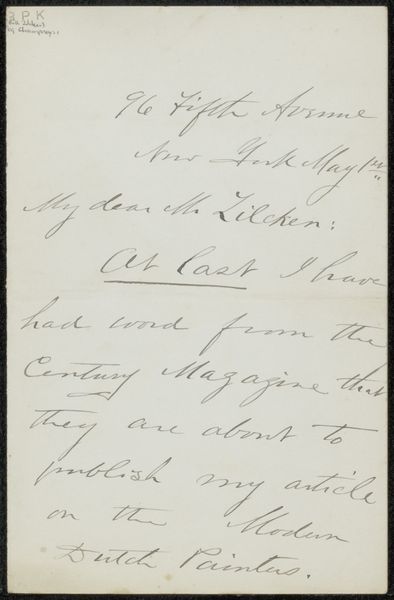 S P K
96 Fifth Avenue
New York May 1st
My dear Mr Zilcken:
At last I have
had word from the
Century Magazine that
they are about to
publish my article
on the Modern
Dutch Painters.